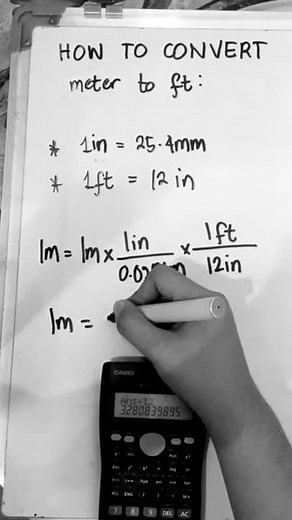 HOW TO CONVERT
meter to ft:
* 1in = 25.4mm
* 1ft = 12in
1m = 1m × 1in / 0.0254m × 1ft / 12in
1m =
CASIO
Ans÷12
3.280839895
7 8 9 DEL AC